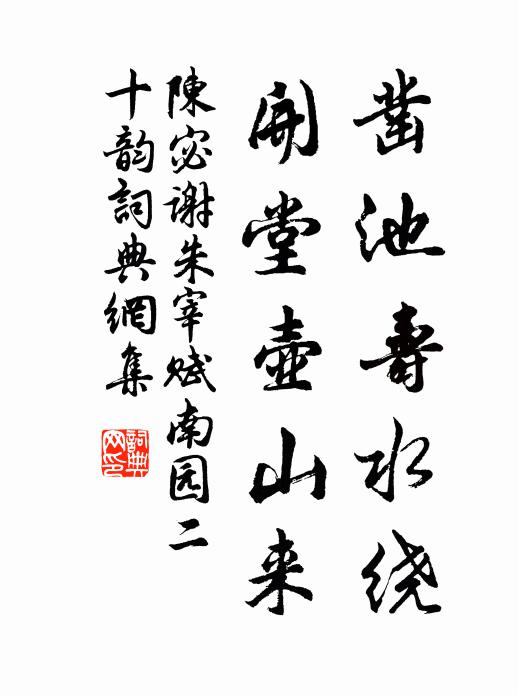 凿池寿水绕
開堂壶山来
陳宓谢朱宰赋南园二
十韵詞典網集
詞典网印